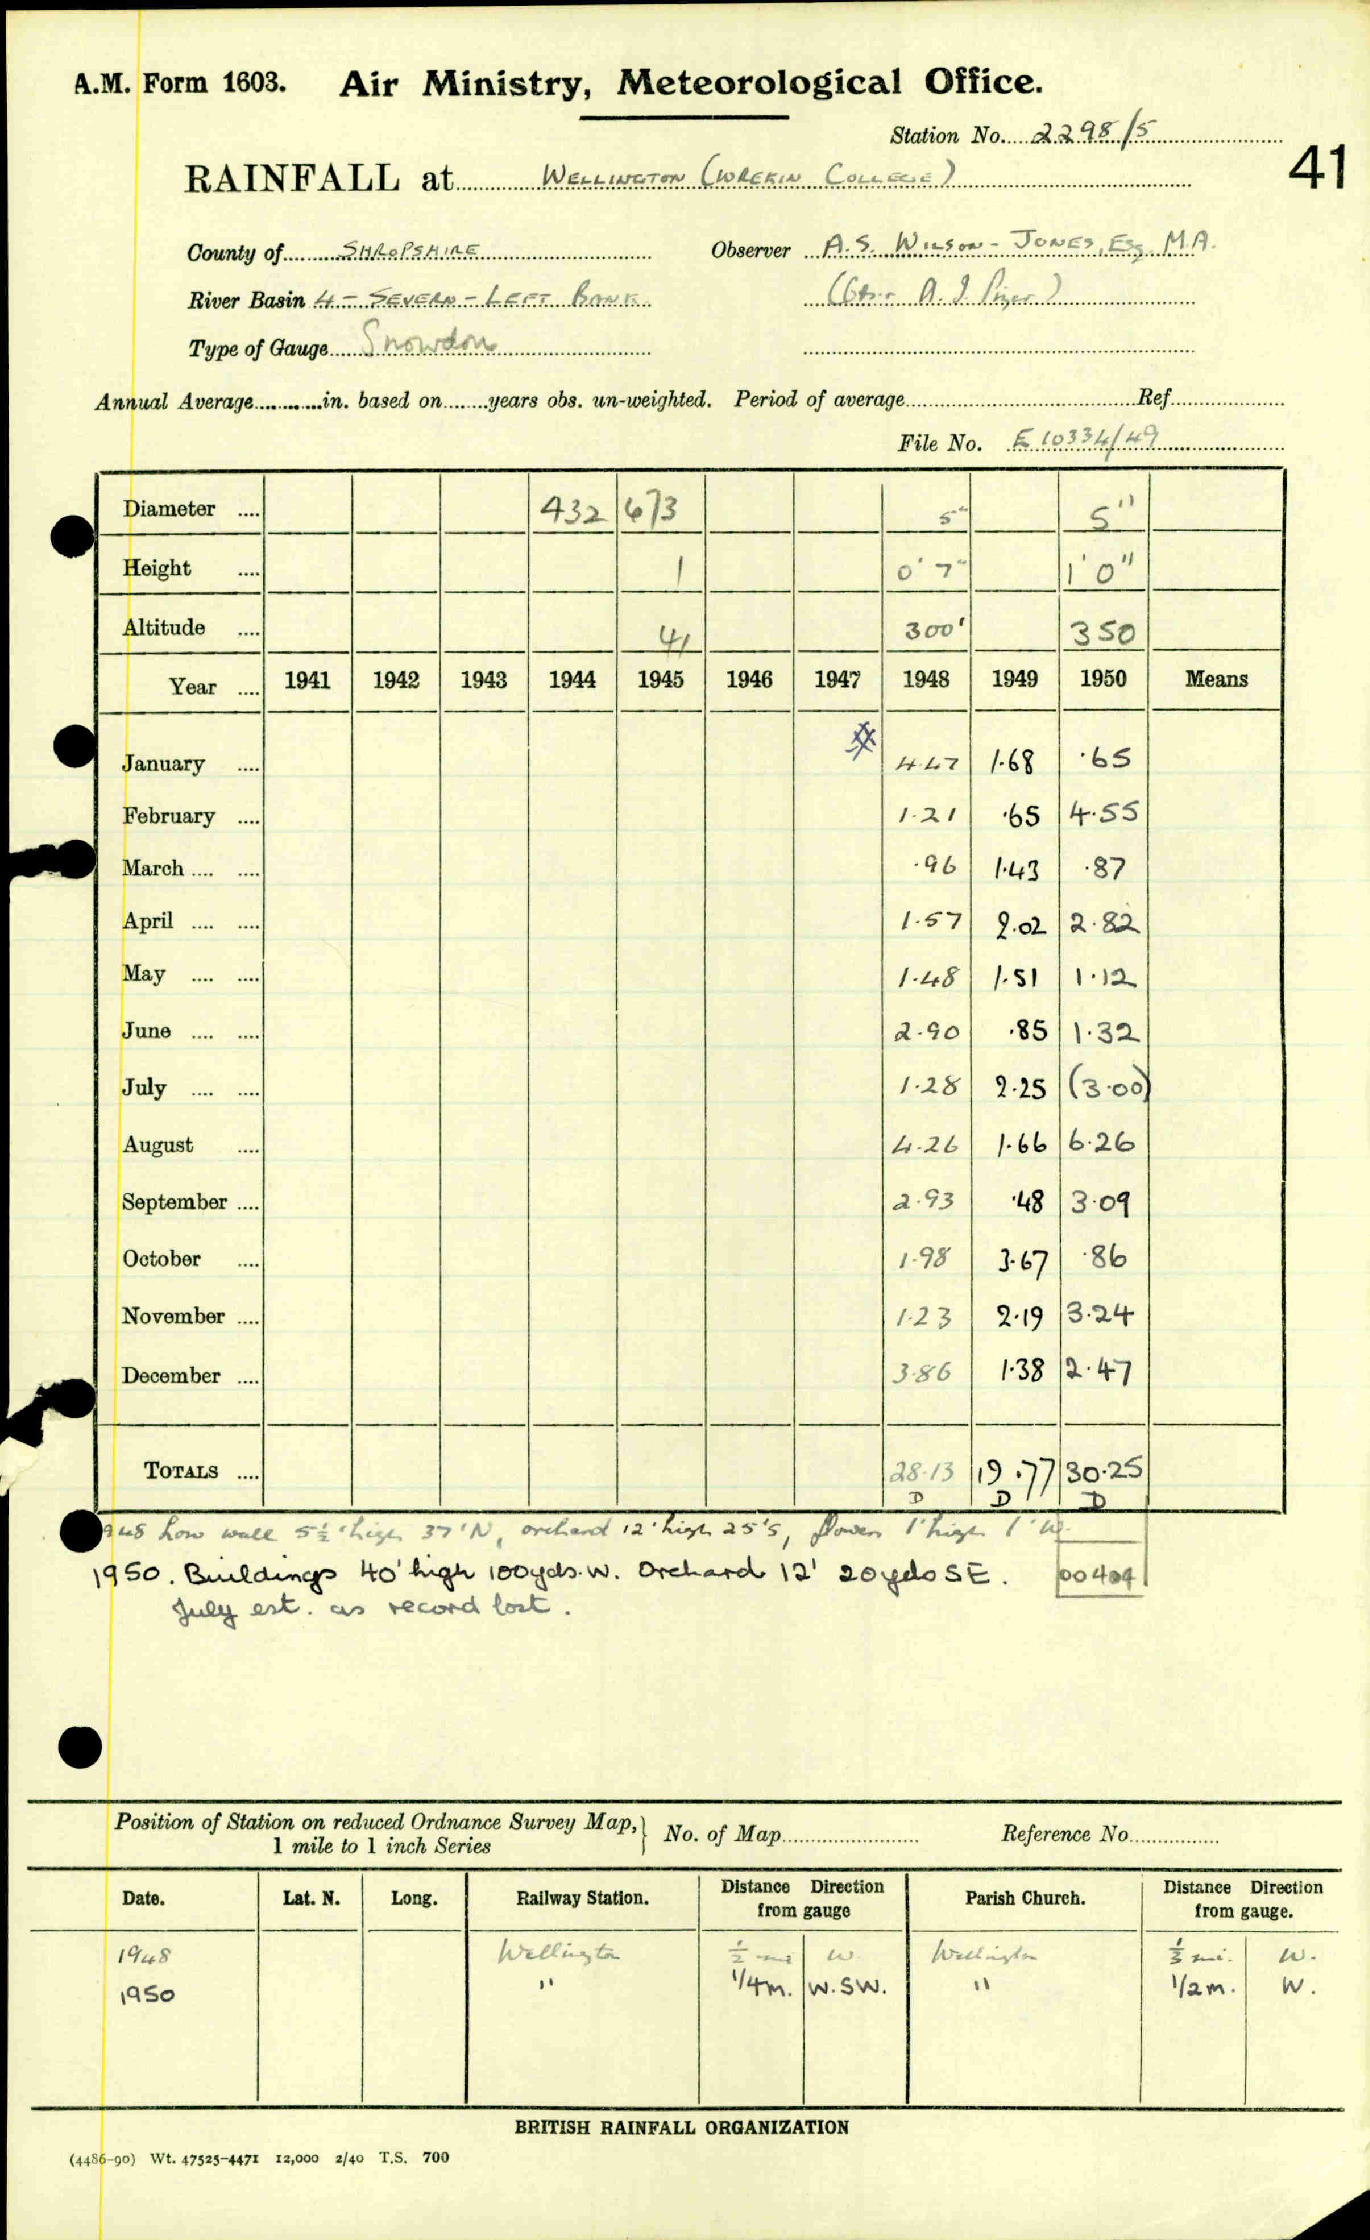 A.M. Form 1603. Air Ministry, Meteorological Office.
Station No. 2298/5
41
RAINFALL at WELLINGTON (WREKIN COLLEGE)
County of SHROPSHIRE Observer A.S. WILSON-JONES, Esq. M.A.
River Basin 4 - SEVERN - LEFT BANK
Type of Gauge Snowdon
Annual Average in. based on years obs. un-weighted. Period of average Ref
File No. E 10334/49
Diameter 432 673 5" 5"
Height 1 0' 7" 1' 0"
Altitude 41 300' 350
Year 1941 1942 1943 1944 1945 1946 1947 1948 1949 1950 Means
January 4.47 1.68 .65
February 1.21 .65 4.55
March .96 1.43 .87
April 1.57 2.02 2.82
May 1.48 1.51 1.12
June 2.90 .85 1.32
July 1.28 2.25 (3.00)
August 4.26 1.66 6.26
September 2.93 .48 3.09
October 1.98 3.67 .86
November 1.23 2.19 3.24
December 3.86 1.38 2.47
TOTALS 28.13 19.77 30.25
D D D
1948 Low wall 5½' high 37' N, orchard 12' high 25' S, flowers 1' high 1' W.
1950. Buildings 40' high 100yds. W. Orchard 12' 20yds SE. 00404
July est. as record lost.
Position of Station on reduced Ordnance Survey Map, 1 mile to 1 inch Series } No. of Map Reference No.
Date. Lat. N. Long. Railway Station. Distance Direction from gauge Parish Church. Distance Direction from gauge.
1948 Wellington ½ mi W Wellington ⅓ mi. W.
1950 " 1/4m. W.SW. " 1/2m. W.
BRITISH RAINFALL ORGANIZATION
(4486-90) Wt. 47525-4471 12,000 2/40 T.S. 700